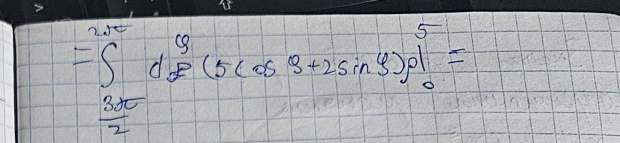 = ∫_{3π/2}^{2π} dφ (5cos φ+2sin φ)ρ|_0^5 =